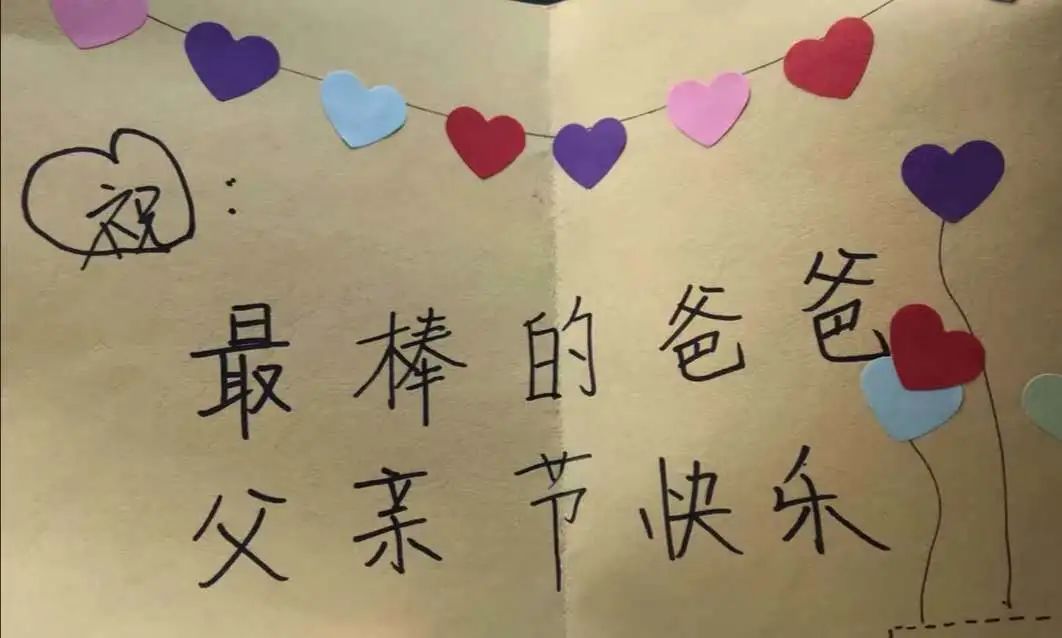 祝：
最棒的爸爸
父亲节快乐